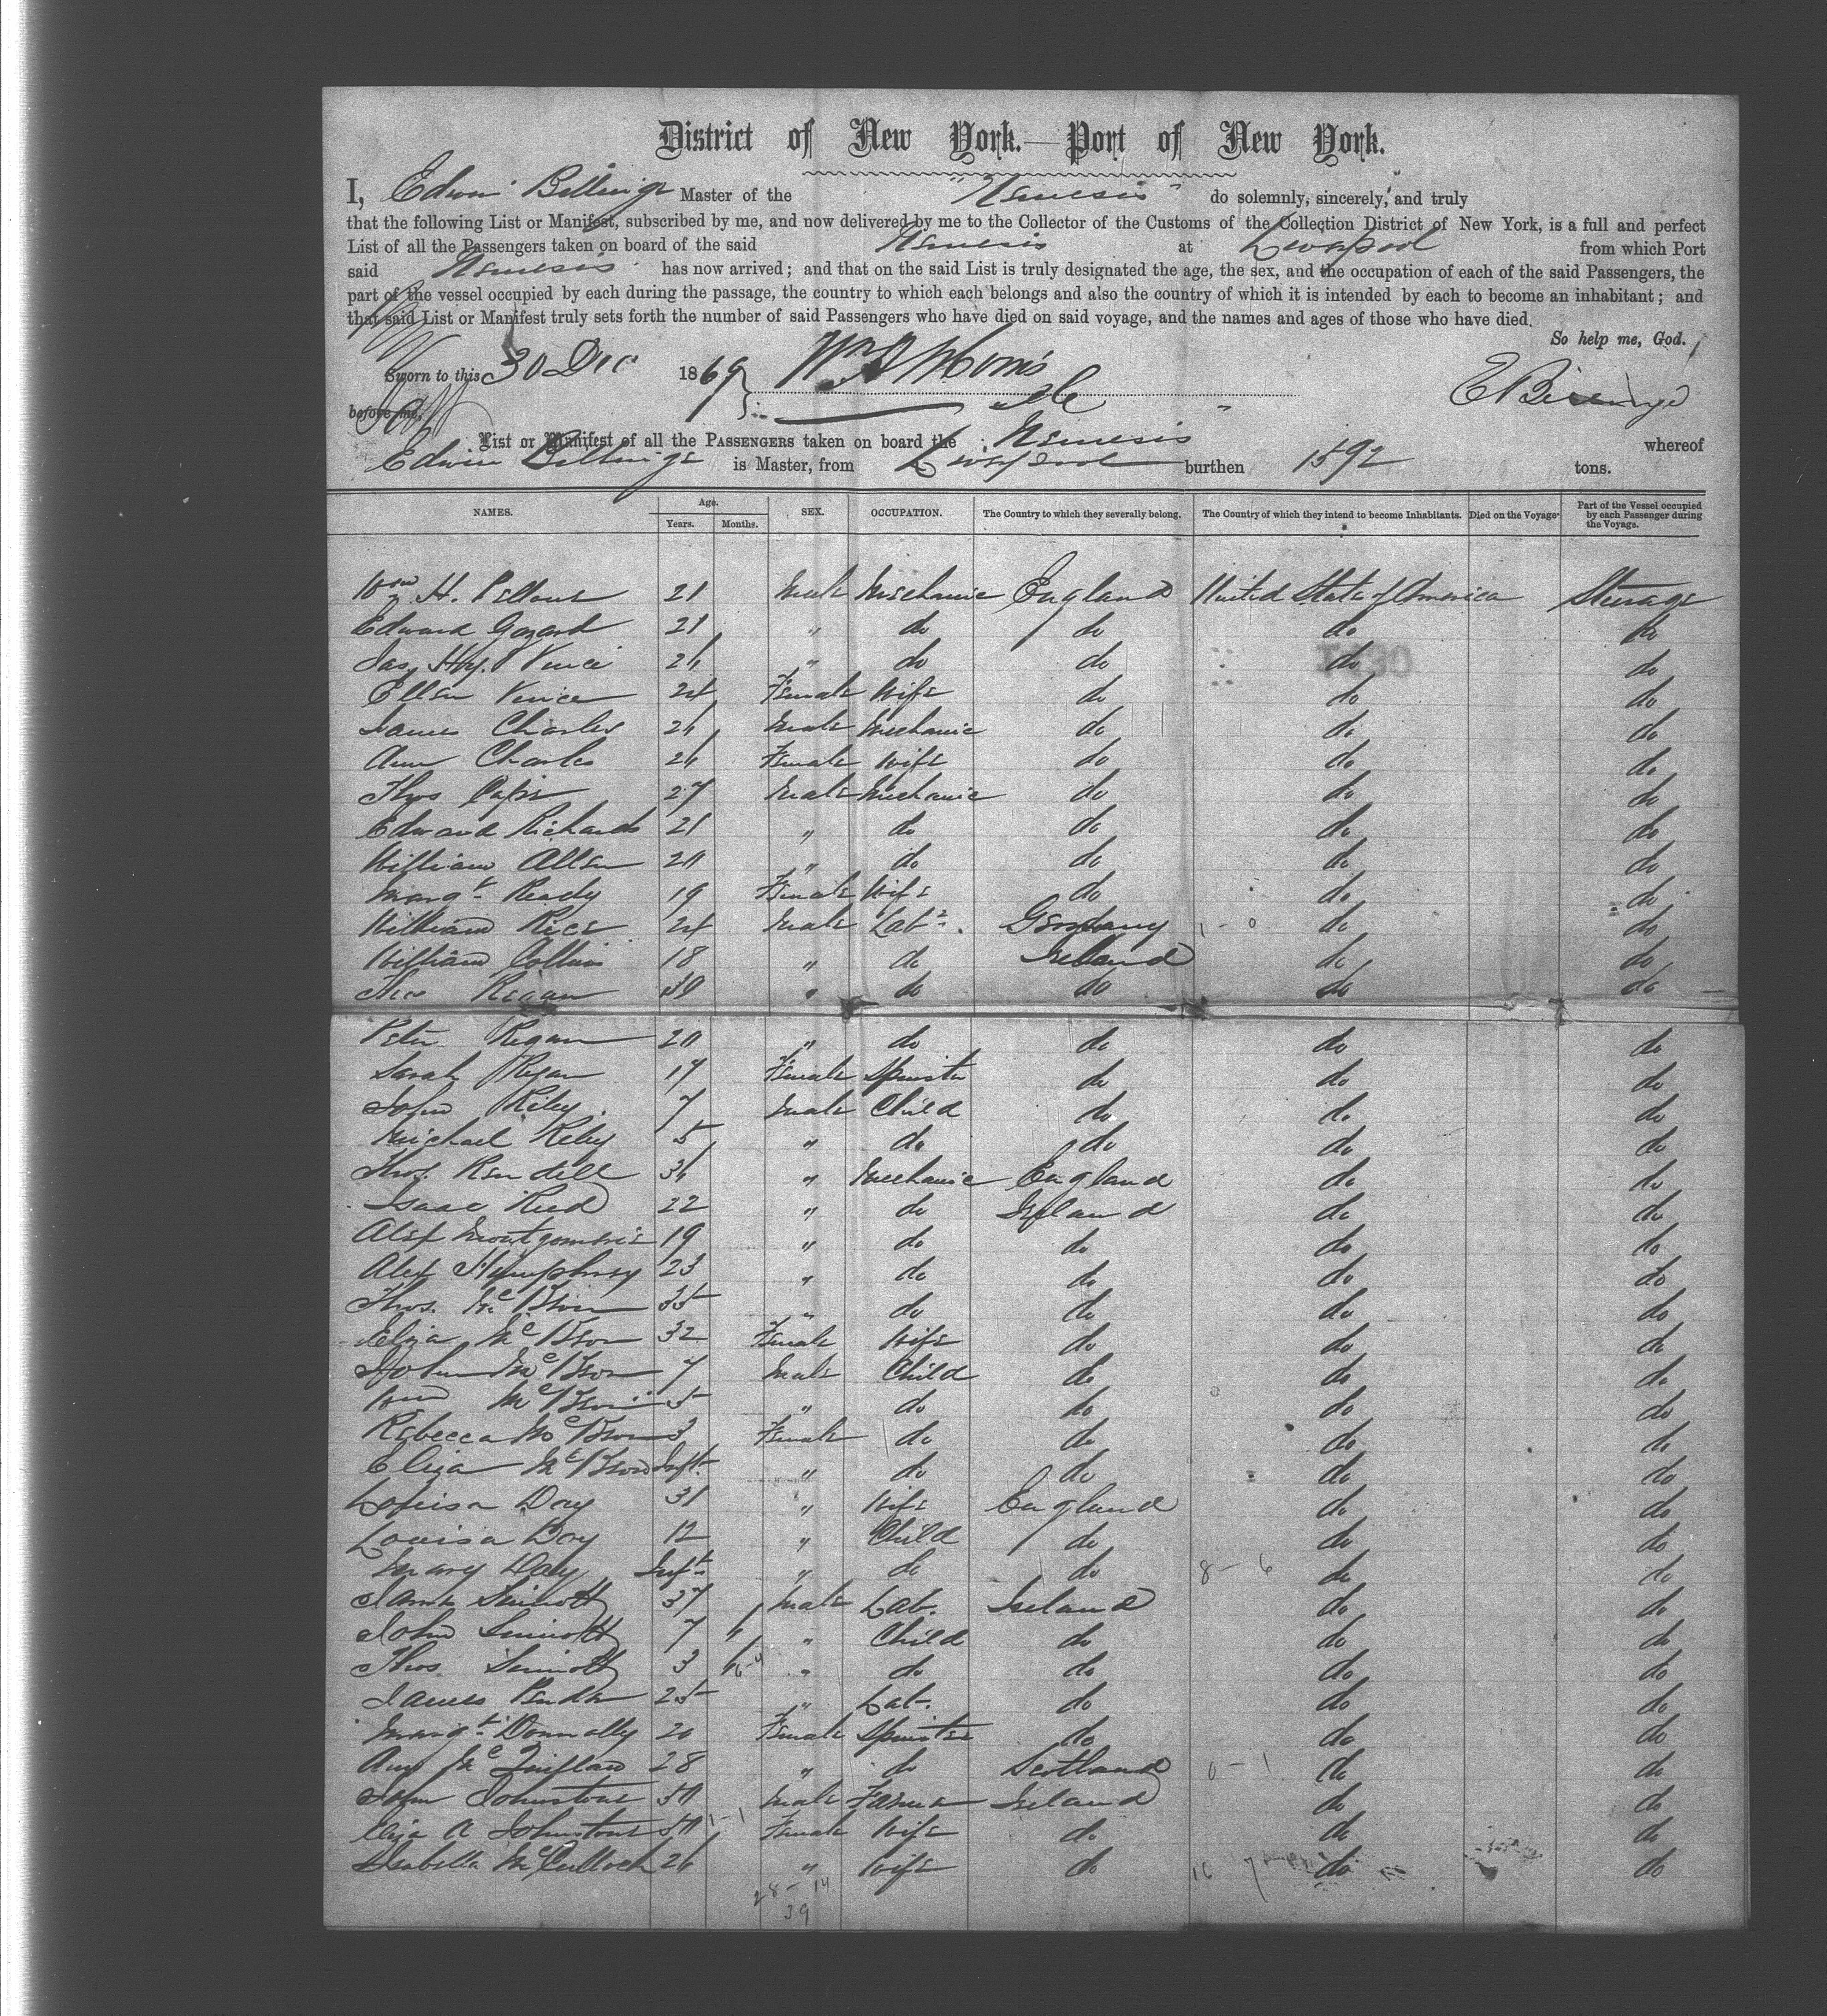 District of New York.—Port of New York.
I, Edwin Billinge Master of the "Nemesis" do solemnly, sincerely, and truly
that the following List or Manifest, subscribed by me, and now delivered by me to the Collector of the Customs of the Collection District of New York, is a full and perfect
List of all the Passengers taken on board of the said Nemesis at Liverpool from which Port
said Nemesis has now arrived; and that on the said List is truly designated the age, the sex, and the occupation of each of the said Passengers, the
part of the vessel occupied by each during the passage, the country to which each belongs and also the country of which it is intended by each to become an inhabitant; and
that said List or Manifest truly sets forth the number of said Passengers who have died on said voyage, and the names and ages of those who have died.
So help me, God.
Sworn to this 30 Dec 1869
before me,
List or Manifest of all the PASSENGERS taken on board the Nemesis whereof
Edwin Billinge is Master, from Liverpool burthen 1592 tons.
NAMES. Age. Years. Months. SEX. OCCUPATION. The Country to which they severally belong. The Country of which they intend to become Inhabitants. Died on the Voyage. Part of the Vessel occupied by each Passenger during the Voyage.
Wm H. 21 Male Mechanic England United State of America Steerage
Edward Gozard 21 " do do do do
Jas. Hy. Vence 26 " do do do do
Ellen Vence 24 Female Wife do do do
James Charles 26 Male Mechanic do do do
Ann Charles 26 Female Wife do do do
Thos 27 Male Mechanic do do do
Edward Richards 21 " do do do do
William Allen 20 " do do do do
Margt Ready 19 Female Wife do do do
William Rice 24 Male Labr. Germany do do
William Collins 18 " do Ireland do do
Regan 30 " do do do do
Peter Regan 20 " do do do do
Sarah Ryan 19 Female Spinster do do do
John Riley 7 Male Child do do do
Michael Riley 5 " do do do do
Thos. Rendell 36 " Mechanic England do do
Isaac Reed 22 " do Ireland do do
Alex Montgomerie 19 " do do do do
Alex Humphrey 23 " do do do do
Thos. 35 " do do do do
Eliza 32 Female Wife do do do
John 7 Male Child do do do
5 " do do do do
Rebecca 3 Female do do do do
Eliza Inft. " do do do do
Louisa Day 31 " Wife England do do
Louisa Day 12 " Child do do do
Mary Day Inft " do do do do
Sinnott 37 Male Lab. Ireland do do
John Sinnott 7 " Child do do do
Thos Sinnott 3 " do do do do
James 25 " Lab. do do do
Margt Donnally 20 Female Spinster do do do
Ann 28 " do Scotland do do
John Johnstone 50 Male Farmer Ireland do do
Eliza A Johnstone 50 Female Wife do do do
Isabella McCulloch 26 " Wife do do do
28 - 14
39